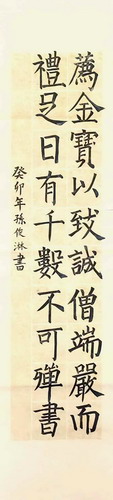 薦金寶以致誠僧端嚴而
禮足日有千數不可殫書
癸卯年孫俊淋書